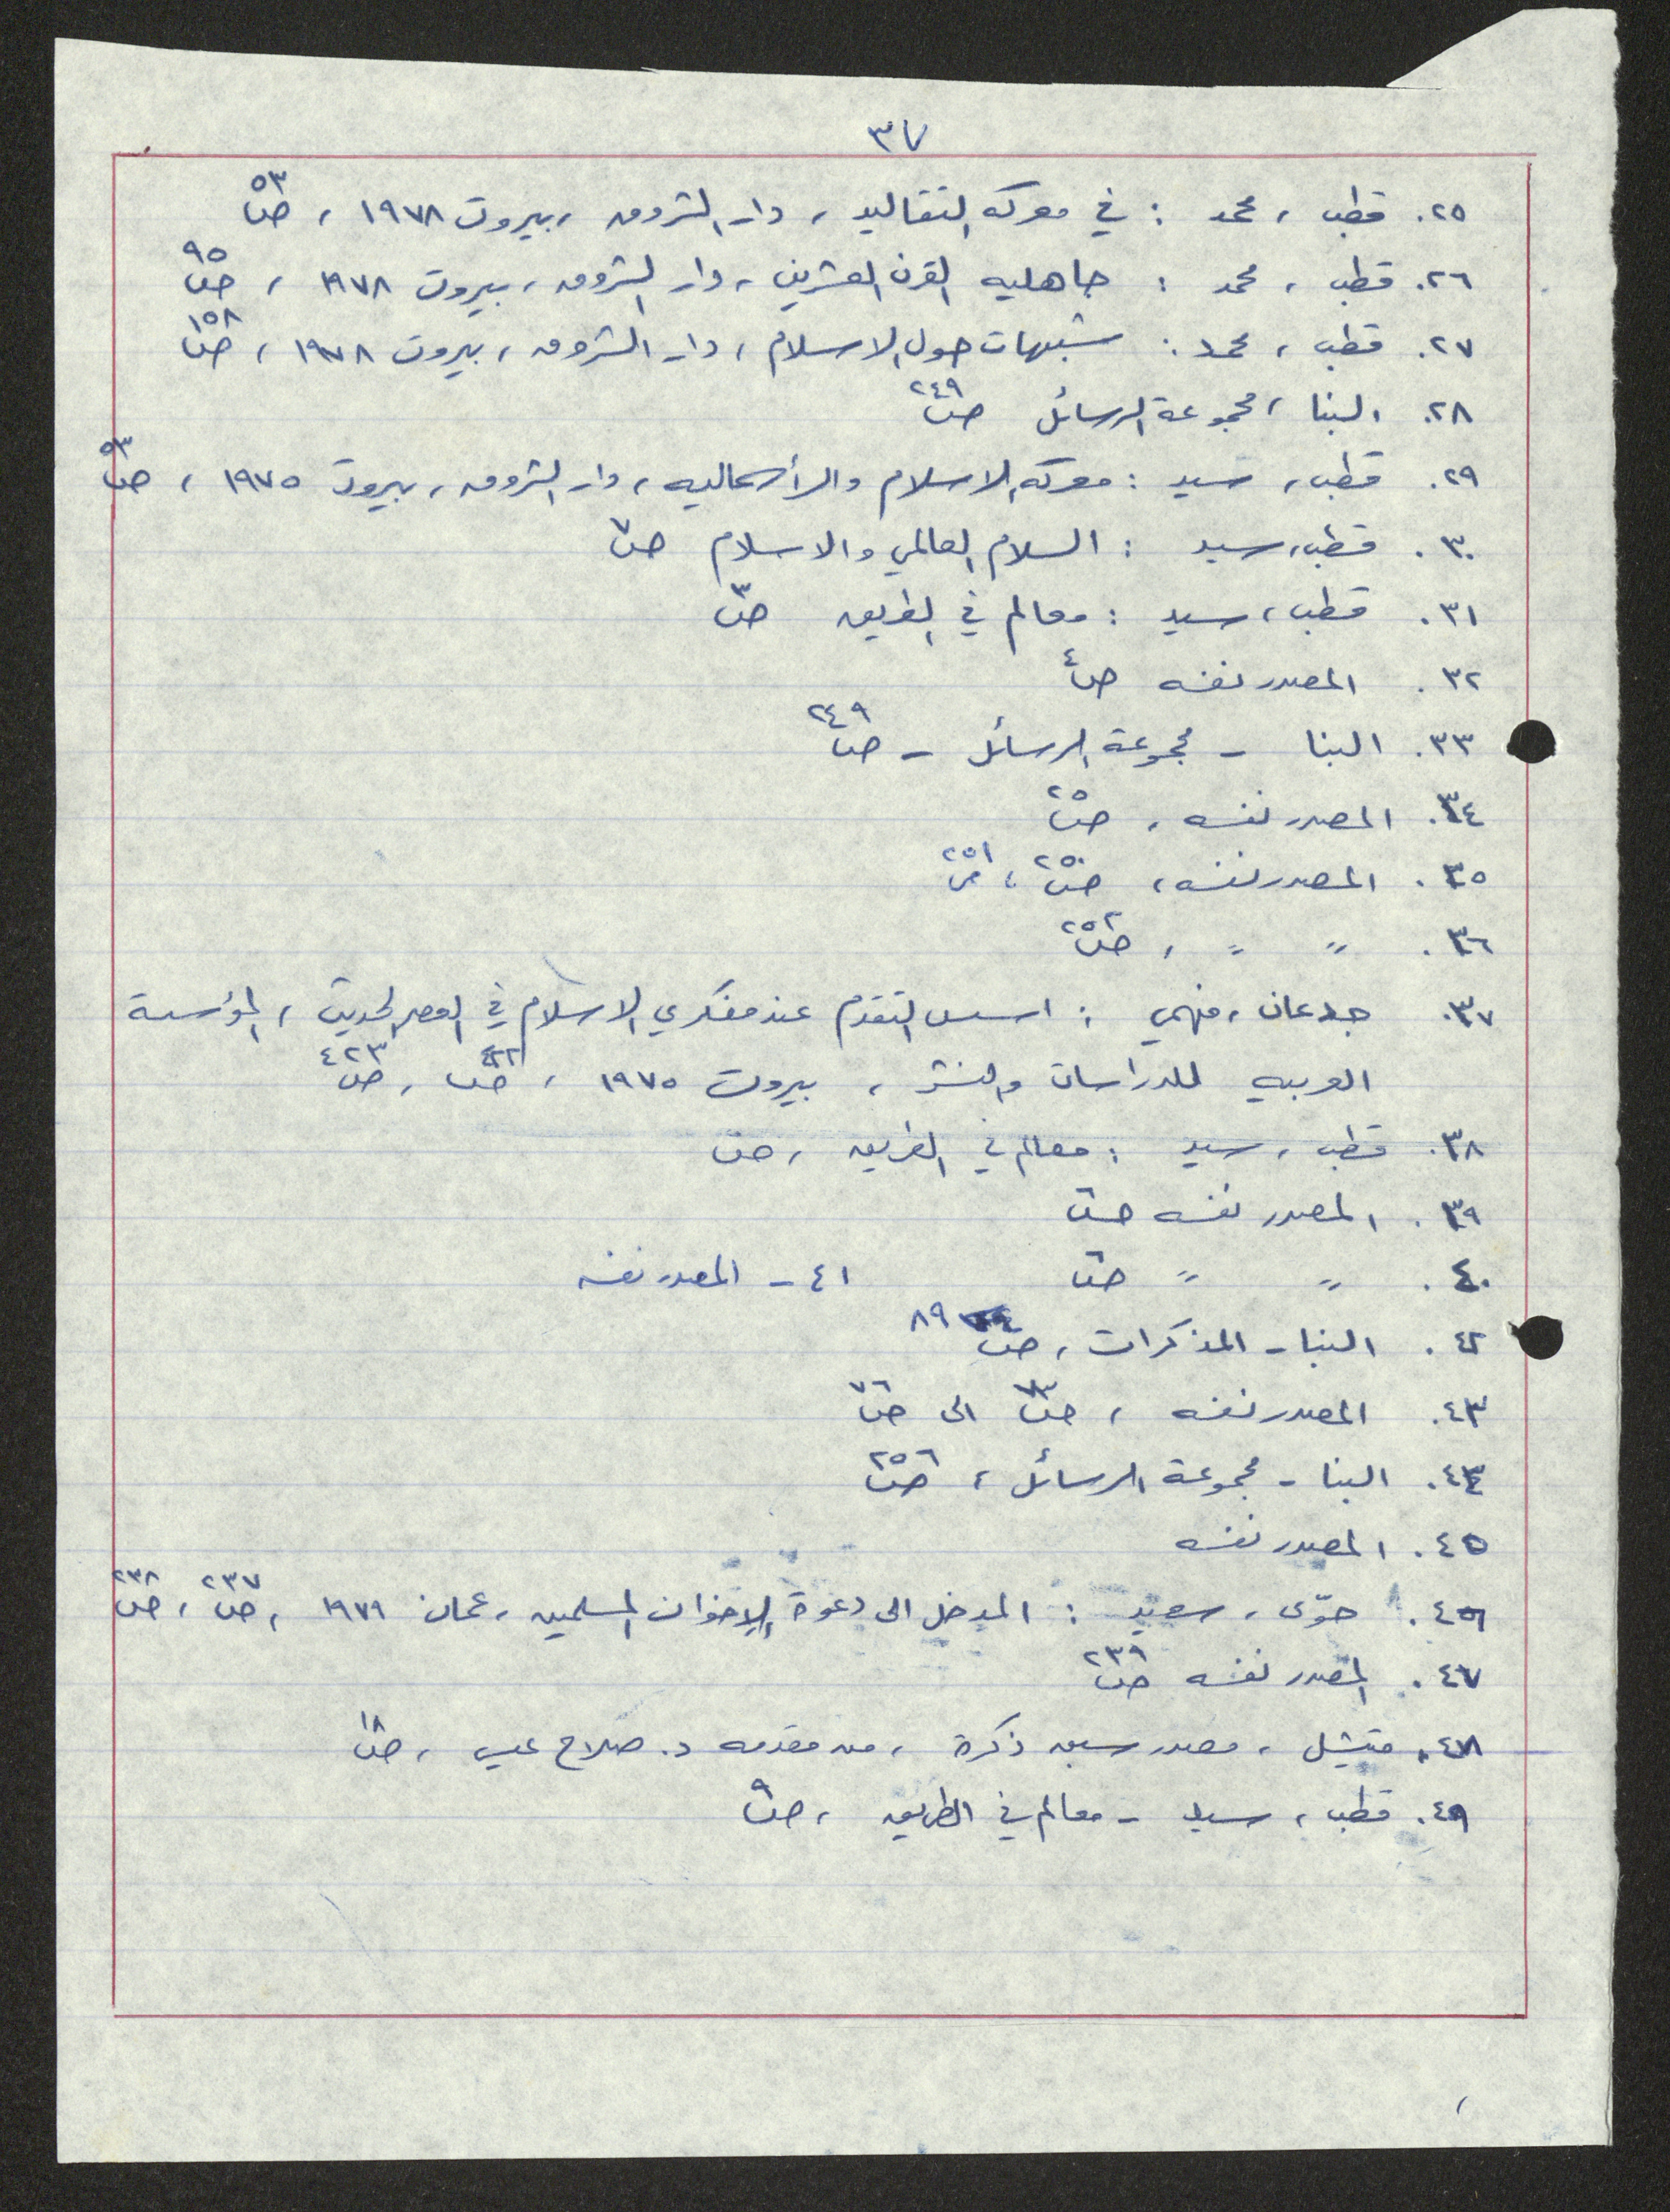 ٣٧
٢٥. قطب ، محمد : في معركه التقاليد ، دار الشروق ، بيروت ١٩٧٨ ، ص ٥٣
٢٦. قطب ، محمد : جاهليه القرن العشرين ، دار الشروق ، بيروت ١٩٧٨ ، ص ٩٥
٢٧. قطب ، محمد : شبهات حول الاسلام ، دار الشروق ، بيروت ١٩٧٨ ، ص ١٥٨
٢٨. البنا ، مجموعة الرسائل ص ٢٤٩
٢٩. قطب ، سيد : معركه الاسلام والرأسماليه ، دار الشروق ، بيروت ١٩٧٥ ، ص ٥٣
٣٠. قطب ، سيد : السلام العالمي والاسلام ص ٧
٣١. قطب ، سيد : معالم في الطريق ص ٣
٣٢. المصدر نفسه ص ٤
٣٣. البنا - مجموعة الرسائل - ص ٢٤٩
٣٤. المصدر نفسه ، ص ٢٥
٣٥. المصدر نفسه ، ص ٢٥٠ ، ص ٢٥١
٣٦. " " ، ص ٢٥٢
٣٧. جدعان ، فهمي : اسس التقدم عند مفكري الاسلام في العصر الحديث ، المؤسسة
العربيه للدراسات والنشر ، بيروت ١٩٧٥ ، ص ٤٢٢ ، ص ٤٢٣
٣٨. قطب ، سيد : معالم في الطريق ، ص
٣٩. المصدر نفسه ص
٤٠. " " ص ٤١ - المصدر نفسه
٤٢. البنا - المذكرات ، ص ٨٩
٤٣. المصدر نفسه ، ص ٧٣ الى ص ٧٦
٤٤. البنا - مجموعة الرسائل ، ص ٢٥٦
٤٥. المصدر نفسه
٤٦. حوّى ، سعيد : المدخل الى دعوة الإخوان المسلمين ، عمان ١٩٧٩ ، ص ٢٣٧ ، ص ٢٣٨
٤٧. المصدر نفسه ص ٢٣٩
٤٨. ميتشل ، مصدر سبق ذكرة ، من مقدمه د. صلاح عيسى ، ص ١٨
٤٩. قطب ، سيد - معالم في الطريق ، ص ٩